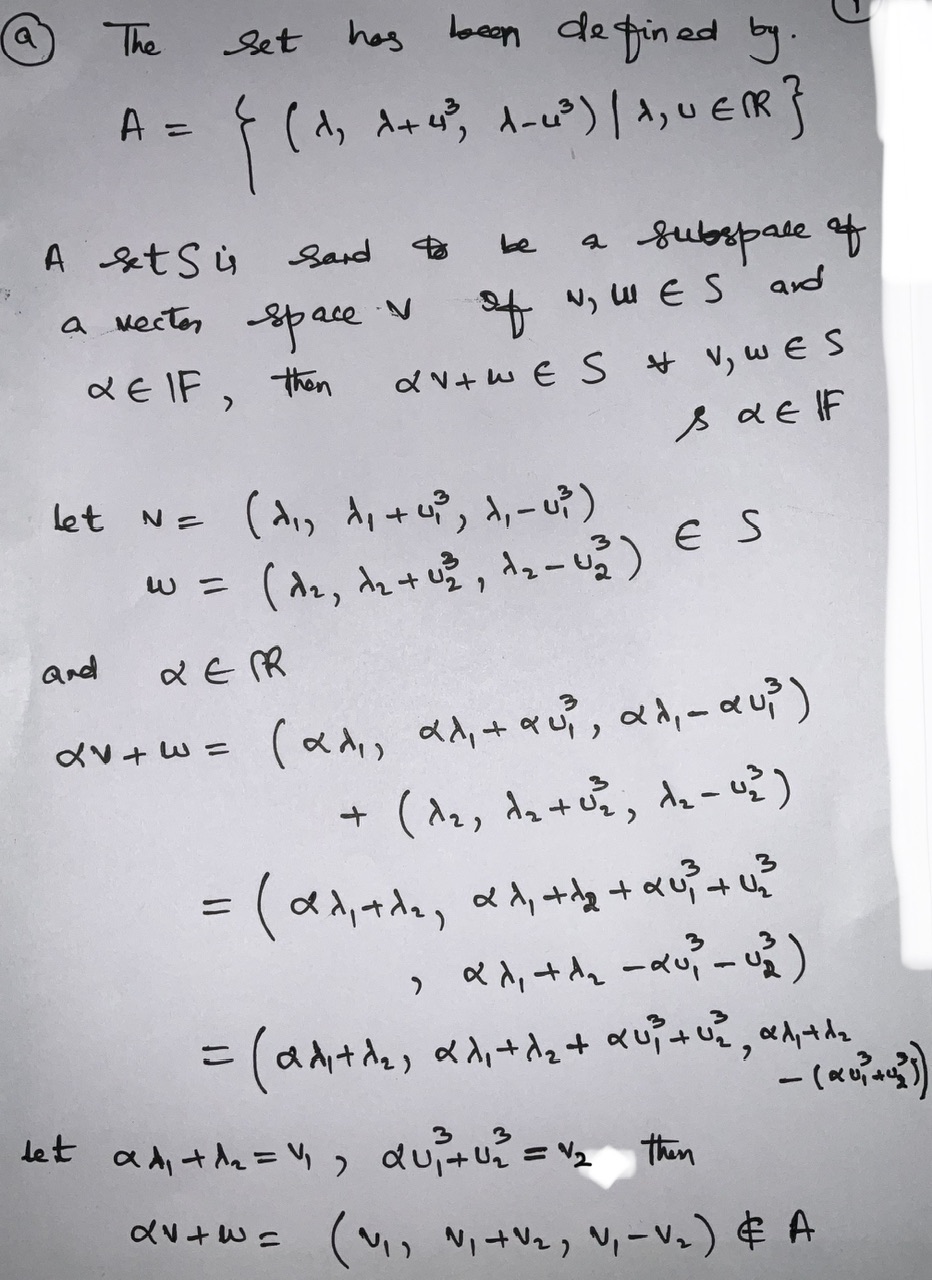 (a) The set has been defined by.
A = { (λ, λ+u³, λ-u³) | λ, u ∈ ℝ }
A set S is said to be a subspace of
a vector space V if v, w ∈ S and
α ∈ 𝔽, then αv+w ∈ S ∀ v, w ∈ S
& α ∈ 𝔽
let v = (λ₁, λ₁+u₁³, λ₁-u₁³)
w = (λ₂, λ₂+u₂³, λ₂-u₂³) ∈ S
and α ∈ ℝ
αv+w = (αλ₁, αλ₁+αu₁³, αλ₁-αu₁³)
+ (λ₂, λ₂+u₂³, λ₂-u₂³)
= (αλ₁+λ₂, αλ₁+λ₂+αu₁³+u₂³
, αλ₁+λ₂-αu₁³-u₂³)
= (αλ₁+λ₂, αλ₁+λ₂+αu₁³+u₂³, αλ₁+λ₂
-(αu₁³+u₂³))
let αλ₁+λ₂ = v₁, αu₁³+u₂³ = v₂ then
αv+w = (v₁, v₁+v₂, v₁-v₂) ∉ A